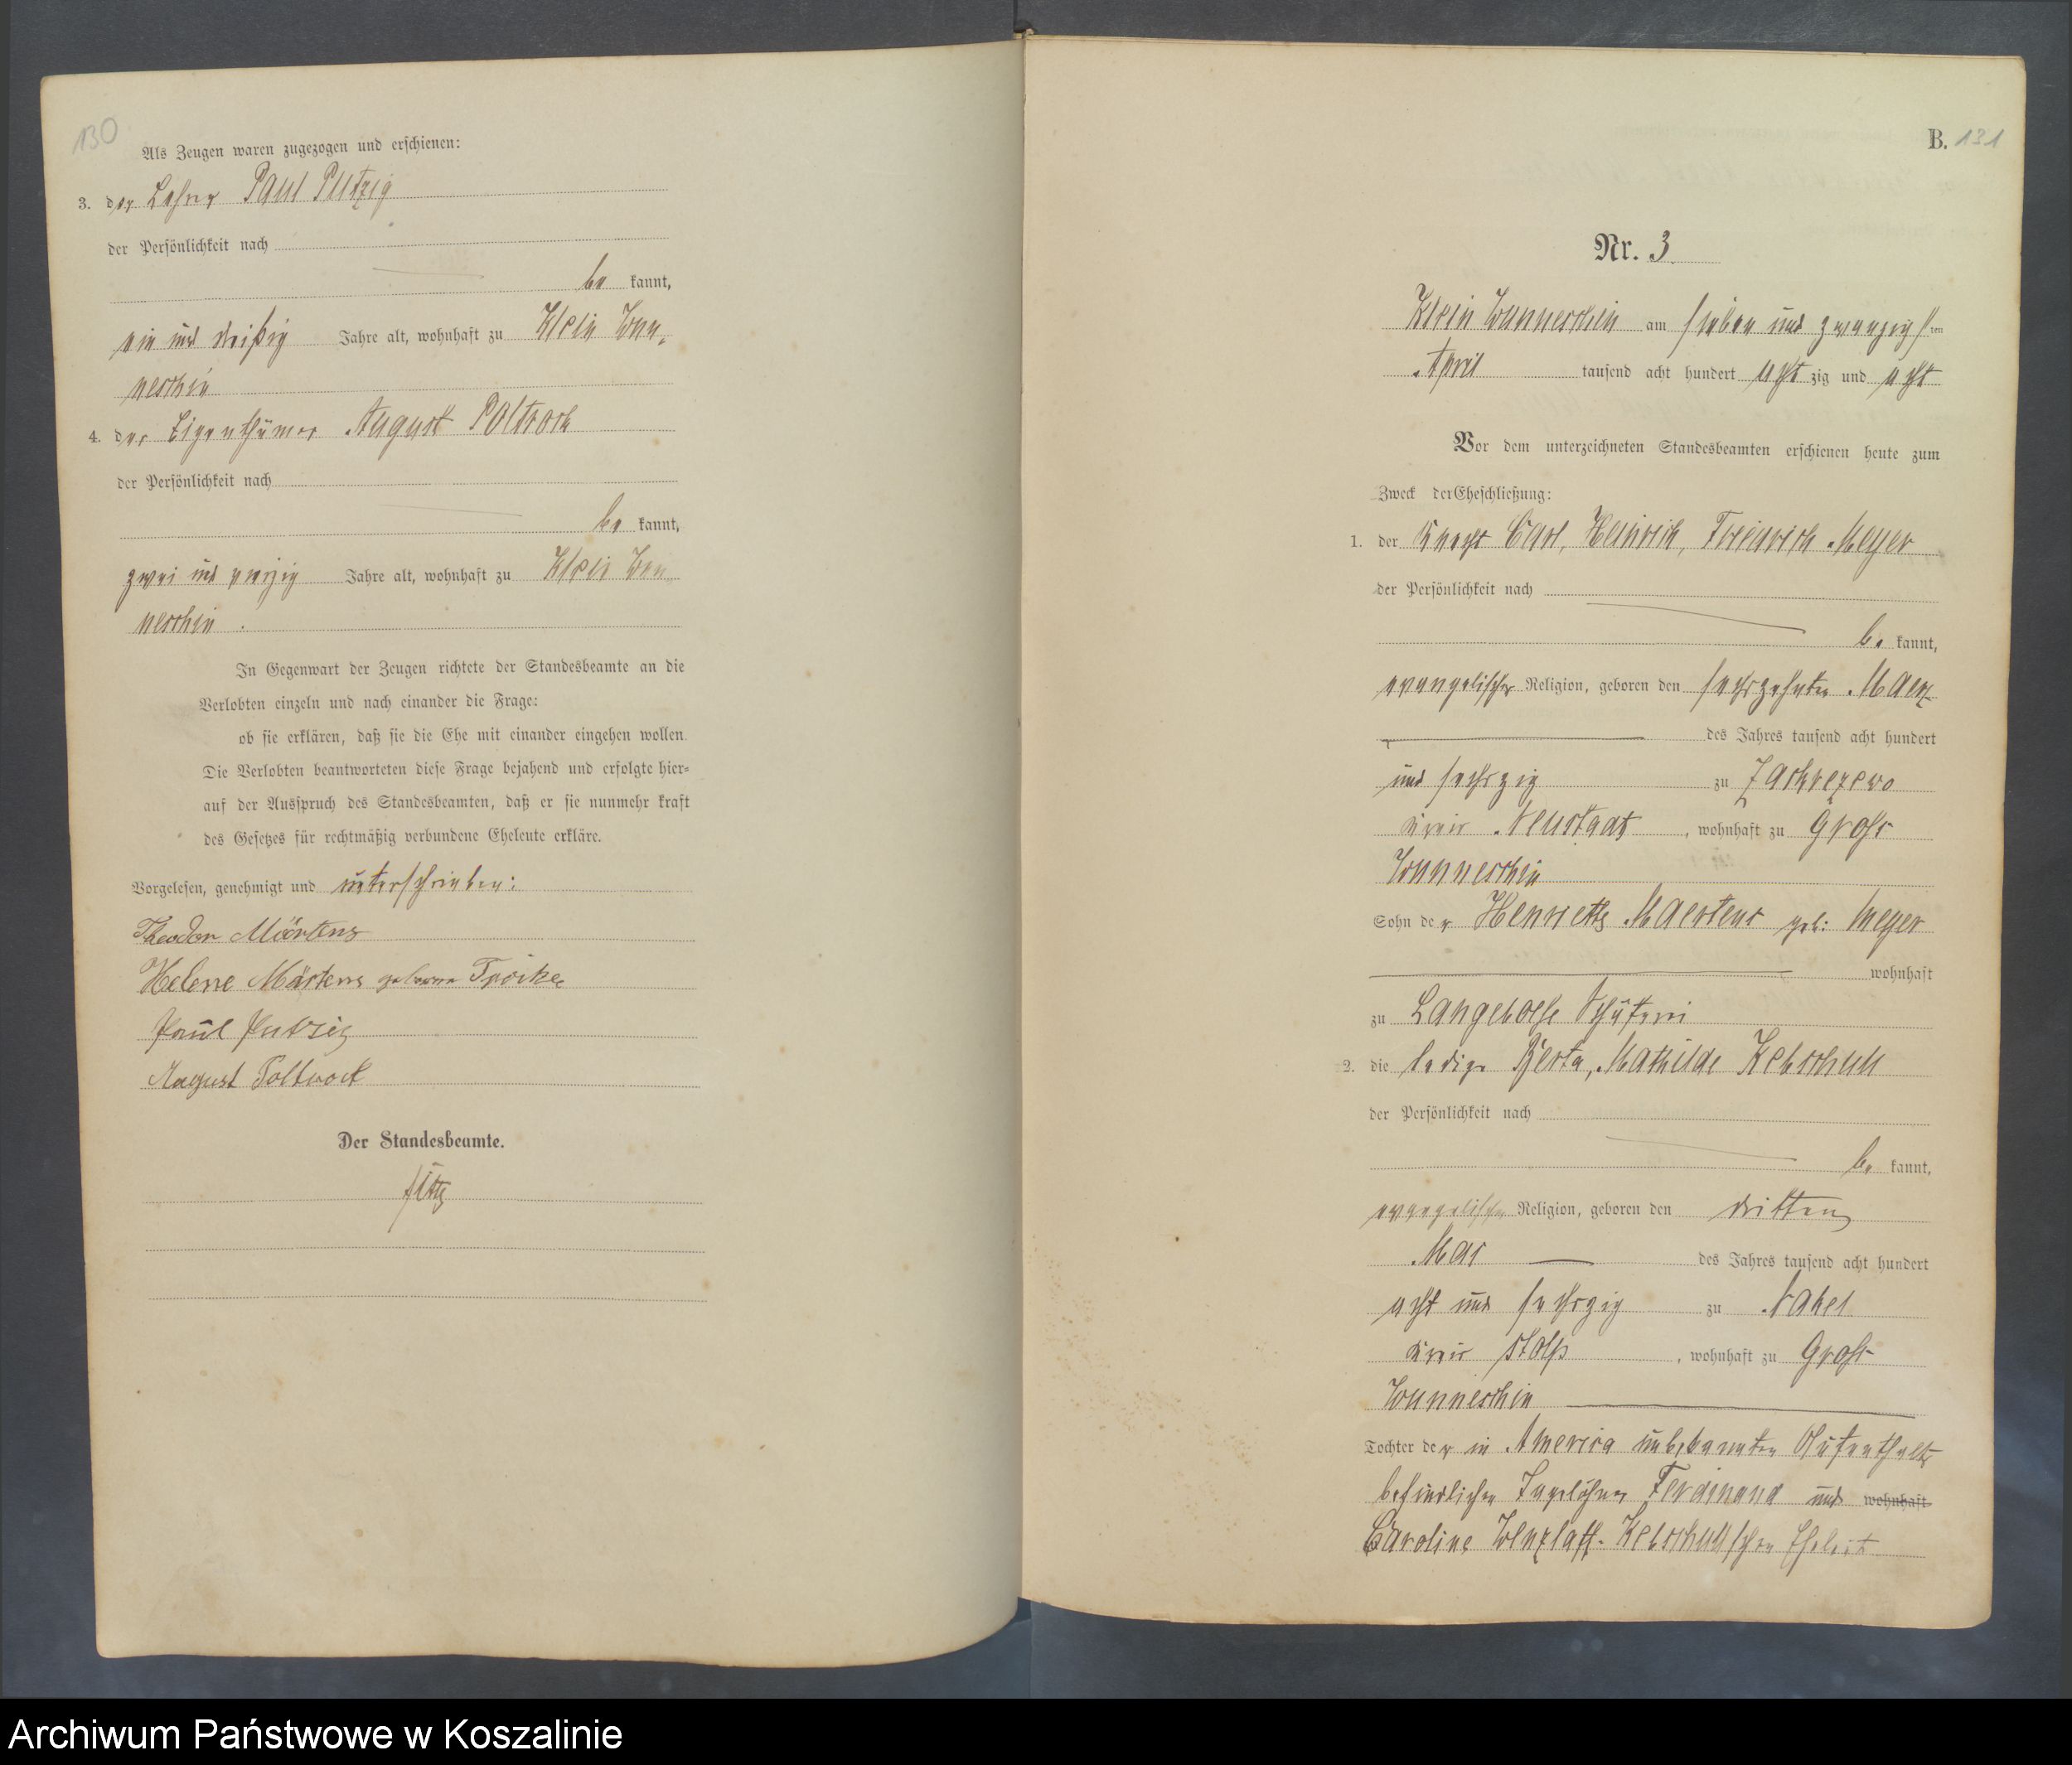 130
Als Zeugen waren zugezogen und erschienen:
3. der Lehrer Paul Putzig
der Persönlichkeit nach
be kannt,
ein und dreißig Jahre alt, wohnhaft zu Klein Wun-
neschin
4. der Eigenthümer August Poltrock
der Persönlichkeit nach
be kannt,
zwei und vierzig Jahre alt, wohnhaft zu Klein Wun
neschin.
In Gegenwart der Zeugen richtete der Standesbeamte an die
Verlobten einzeln und nach einander die Frage:
ob sie erklären, daß sie die Ehe mit einander eingehen wollen.
Die Verlobten beantworteten diese Frage bejahend und erfolgte hier=
auf der Ausspruch des Standesbeamten, daß er sie nunmehr kraft
des Gesetzes für rechtmäßig verbundene Eheleute erkläre.
Vorgelesen, genehmigt und unterschrieben:
Theodor Märtens
Helene Märtens geborene
Paul Putzig
August Poltrock
Der Standesbeamte.
B. 131
Nr. 3.
Klein Wunneschin am sieben und zwanzigs ten
April tausend acht hundert acht zig und acht
Vor dem unterzeichneten Standesbeamten erschienen heute zum
Zweck der Eheschließung:
1. der Knecht Carl, Heinrich, Friedrich Meyer
der Persönlichkeit nach
be kannt,
evangelischer Religion, geboren den sechszehnten Maerz
des Jahres tausend acht hundert
und sechszig zu Zackrzewo
Kreis Neustadt, wohnhaft zu Gross
Wunneschin
Sohn der Henriette Maertens geb: Meyer
wohnhaft
zu Langeboese Schäferei
2. die ledige Berta, Mathilde Kebschull
der Persönlichkeit nach
be kannt,
evangelischer Religion, geboren den dritten
Mai des Jahres tausend acht hundert
acht und sechszig zu
Kreis Stolp, wohnhaft zu Gross
Wunneschin
Tochter der in America unbekannten Aufenthalts
befindlichen Tagelöhner Ferdinand und wohnhaft
Caroline Wenzlaff-Kebschullschen Eheleute
Archiwum Państwowe w Koszalinie